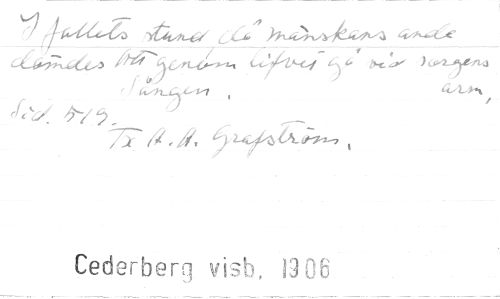 I fallets stund då mänskans ande
dömdes att genom lifvet gå vid sorgens
Sången. arm,
Sid. 519.
Tx A. A. Grafström.
Cederberg visb. 1906